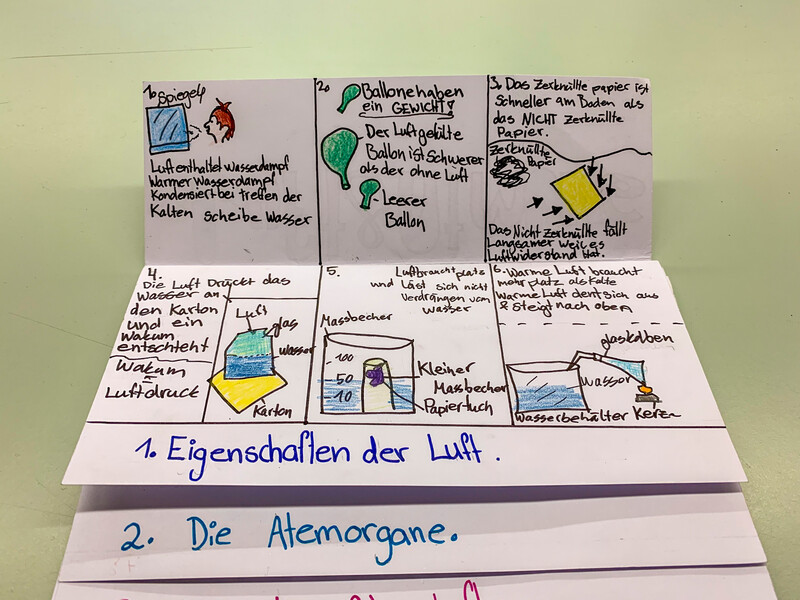 1. Spiegel
Luft enthaltet Wasserdampf
Warmer Wasserdampf
Kondensiert bei treffen der
Kalten scheibe Wasser
2.
Ballone haben
ein GEWICHT!
Der Luftgefülte
Ballon ist Schwerer
als der ohne Luft
Leerer
Ballon
3. Das Zerknüllte papier ist
Schneller am Boden als
das NICHT Zerknüllte
Papier.
Zerknüllte
Papier
Das Nicht Zerknüllte fällt
Langsamer weil es
Luftwiderstand hat.
4.
Die Luft Drückt das
Wasser an
den Karton
und ein
Wakum
entschteht
Wakum
=
Luftdruck
Luft
glas
Wasser
Karton
5.
Luft braucht platz
und Läst sich nicht
Verdrängen vom
Wasser
Massbecher
100
50
10
Kleiner
Massbecher
Papiertuch
6. Warme Luft braucht
mehr platz als Kalte
Warme Luft dent sich aus
& Steigt nach oben
glaskolben
Wasser
Wasserbehälter Kerze
1. Eigenschaften der Luft.
2. Die Atemorgane.